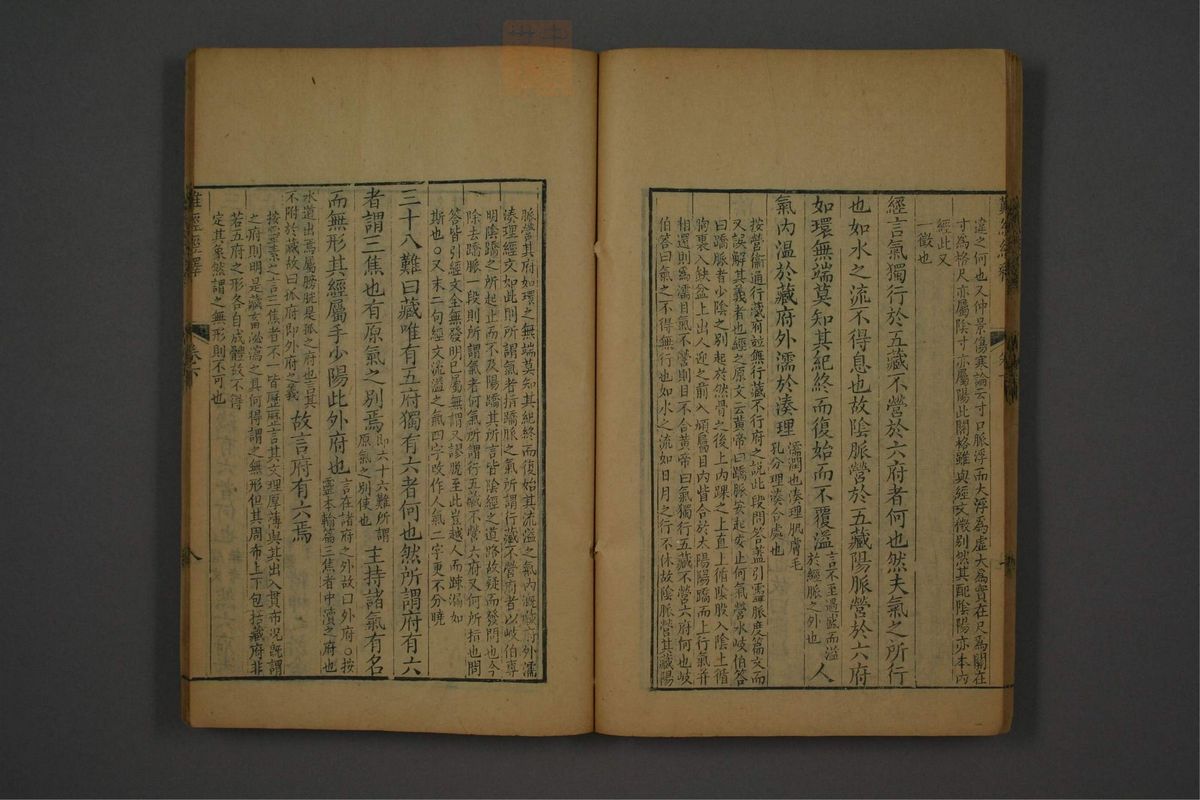 違之何也又仲景傷寒論云寸口脈浮而大浮為虛大為實在尺為關在
寸為格尺亦屬陰寸亦屬陽此關格雖與經文微別然其配陰陽亦本內
經此又
一徵也
經言氣獨行於五藏不營於六府者何也然夫氣之所行
也如水之流不得息也故陰脈營於五藏陽脈營於六府
如環無端莫知其紀終而復始而不覆溢言不至過盛而溢於經脈之外也人
氣內温於藏府外濡於湊理濡潤也湊理肌膚毛孔分理湊合處也
按營衞通行藏府並無行藏不行府之說此段問答蓋引靈脈度篇文而
又誤解其義者也經之原文云黃帝曰蹻脈安起安止何氣營水岐伯答
曰蹻脈者少陰之別起於然骨之後上內踝之上直上循陰股入陰上循
胸裏入缺盆上出人迎之前入頄屬目內眥合於太陽陽蹻而上行氣并
相還則為濡目氣不營則目不合黃帝曰氣獨行五藏不營六府何也岐
伯答曰氣之不得無行也如水之流如日月之行不休故陰脈營其藏陽
脈營其府如環之無端莫知其紀終而復始其流溢之氣內溉藏府外濡
湊理經文如此則所謂氣者指蹻脈之氣所謂行藏不營府者以岐伯專
明陰蹻之所起止而不及陽蹻其所言皆陰經之道路故疑而發問也今
除去蹻脈一段則所謂氣者何氣所謂行五藏不營六府又何所指也問
答皆引經文全無發明已屬無謂又謬脫至此豈越人而疎漏如
斯也○又末二句經文流溢之氣四字改作人氣二字更不分曉
三十八難曰藏唯有五府獨有六者何也然所謂府有六
者謂三焦也有原氣之別焉即六十六難所謂原氣之別使也主持諸氣有名
而無形其經屬手少陽此外府也言在諸府之外故曰外府○按靈本輸篇三焦者中瀆之府也
水道出焉屬膀胱是孤之府也言其不附於藏故曰孤府即外府之義故言府有六焉
按靈素之言三焦者不一皆歷歷言其文理厚薄與其出入貫布況既謂
之府則明是藏畜泌瀉之具何得謂之無形但其周布上下包括藏府非
若五府之形各自成體故不得
定其象然謂之無形則不可也
難經經釋
卷六
八